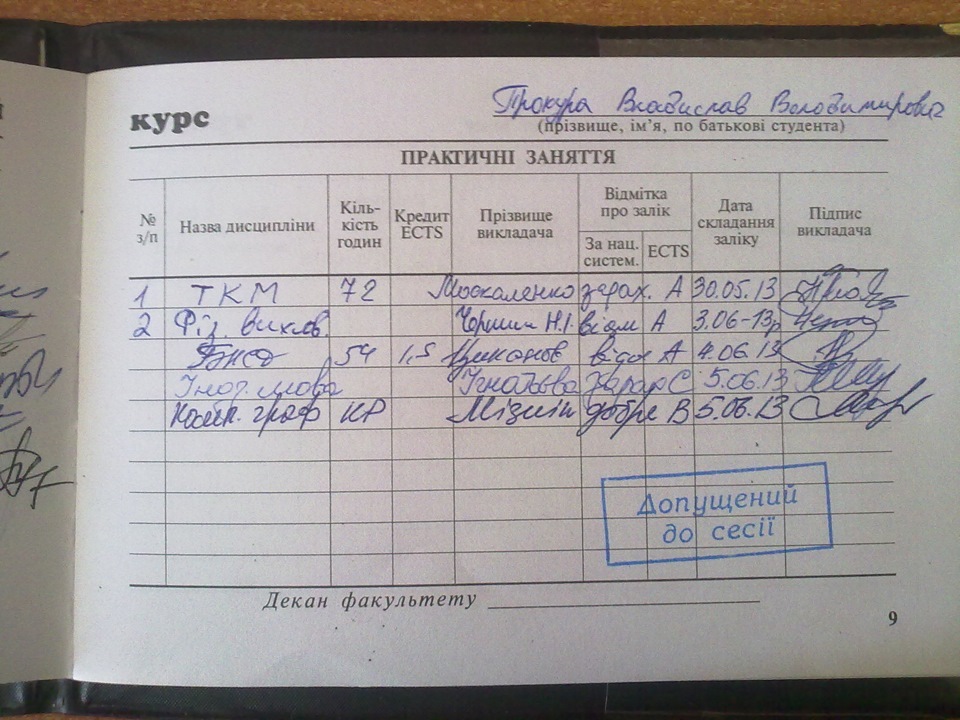 Прокура Владислав Володимирович
курс
(прізвище, ім’я, по батькові студента)
ПРАКТИЧНІ ЗАНЯТТЯ
№ з/п Назва дисципліни Кіль-кість годин Кредит ECTS Прізвище викладача Відмітка про залік За нац. систем. ECTS Дата складання заліку Підпис викладача
1 ТКМ 72 Москаленко зарах. А 30.05.13
2 Фіз. вихов. Н.І. відм А 3.06-13р
БЖД 54 1,5 відм А 4.06.13
Іноз. мова Ігнатьєва зарах С 5.06.13
Комп. граф КР добре В 5.06.13
Допущений
до сесії
Декан факультету
9